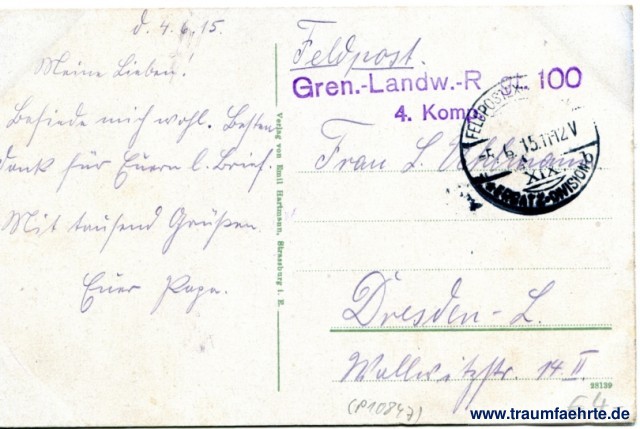 d. 4.6.15.
Meine Lieben!
Befinde mich wohl. Besten
Dank für Euern l. Brief.
Mit tausend Grüßen
Euer Papa.
Verlag von Emil Hartmann, Strassburg i. E.
Feldpost.
Gren.-Landw.-R 100
4. Komp.
5.6.15.11-12V
XIX
ERSATZ-DIVISION
Frau L.
Dresden-L.
Wallwitzstr. 14 II.
28139
(P10847)
www.traumfaehrte.de